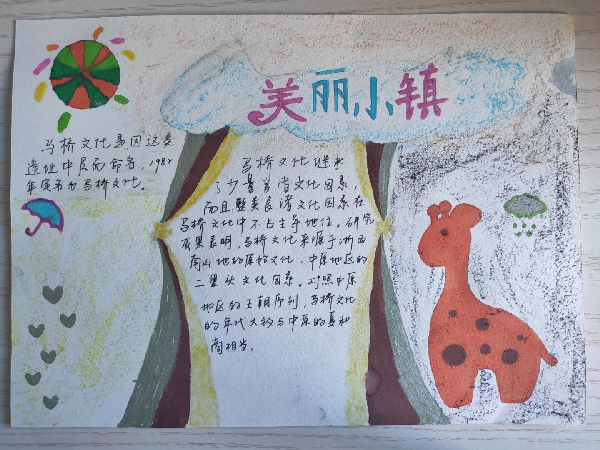 美丽小镇
马桥文化是因这类
遗址中层而命名，1982
年定名为马桥文化。
马桥文化继承
了少量良渚文化因素，
而且照美良渚文化因素在
马桥文化中不占主导地位。研究
成果表明，马桥文化来源于浙西
南山地的原始文化，中原地区的
二里头文化因素。对照中原
地区的王朝序列，马桥文化
的年代大约与中原的夏和
商相当。